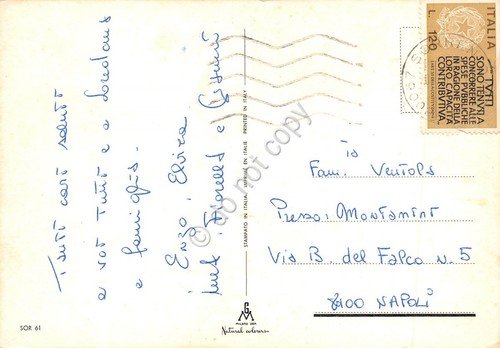 Tanti cari saluti
a voi tutti e a Loredana
e famiglia.
Enzo, Elvira
Fiorella e
SOR 61
STAMPATO IN ITALIA - IMPRIMÉ EN ITALIE - PRINTED IN ITALY
MILANO
Natural colours
do not copy
ITALIA
L. 120
TUTTI
SONO TENUTI A
CONCORRERE ALLE
SPESE PUBBLICHE
IN RAGIONE DELLA
LORO CAPACITÀ
CONTRIBUTIVA.
Fam. Ventola
Presso: Montanino
Via B. del Falco n. 5
8100 NAPOLI